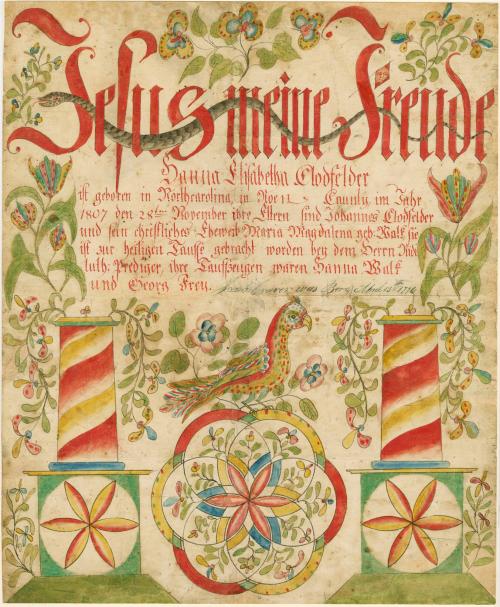 Jesus meine Freude
Hanna Elisabetha Clodfelder
ist geboren in Northcarolina, in Ro
County, im Jahr
1807 den 28sten November ihre Eltern sind Johannes Clodfelder
und sein christliches Eheweib Maria Magdalena geb: Walk sie
ist zur heiligen Taufe gebracht worden bey dem Herrn
luth: Prediger, ihre Taufzeugen waren Hanna Walk
und Georg Frey.
was Born